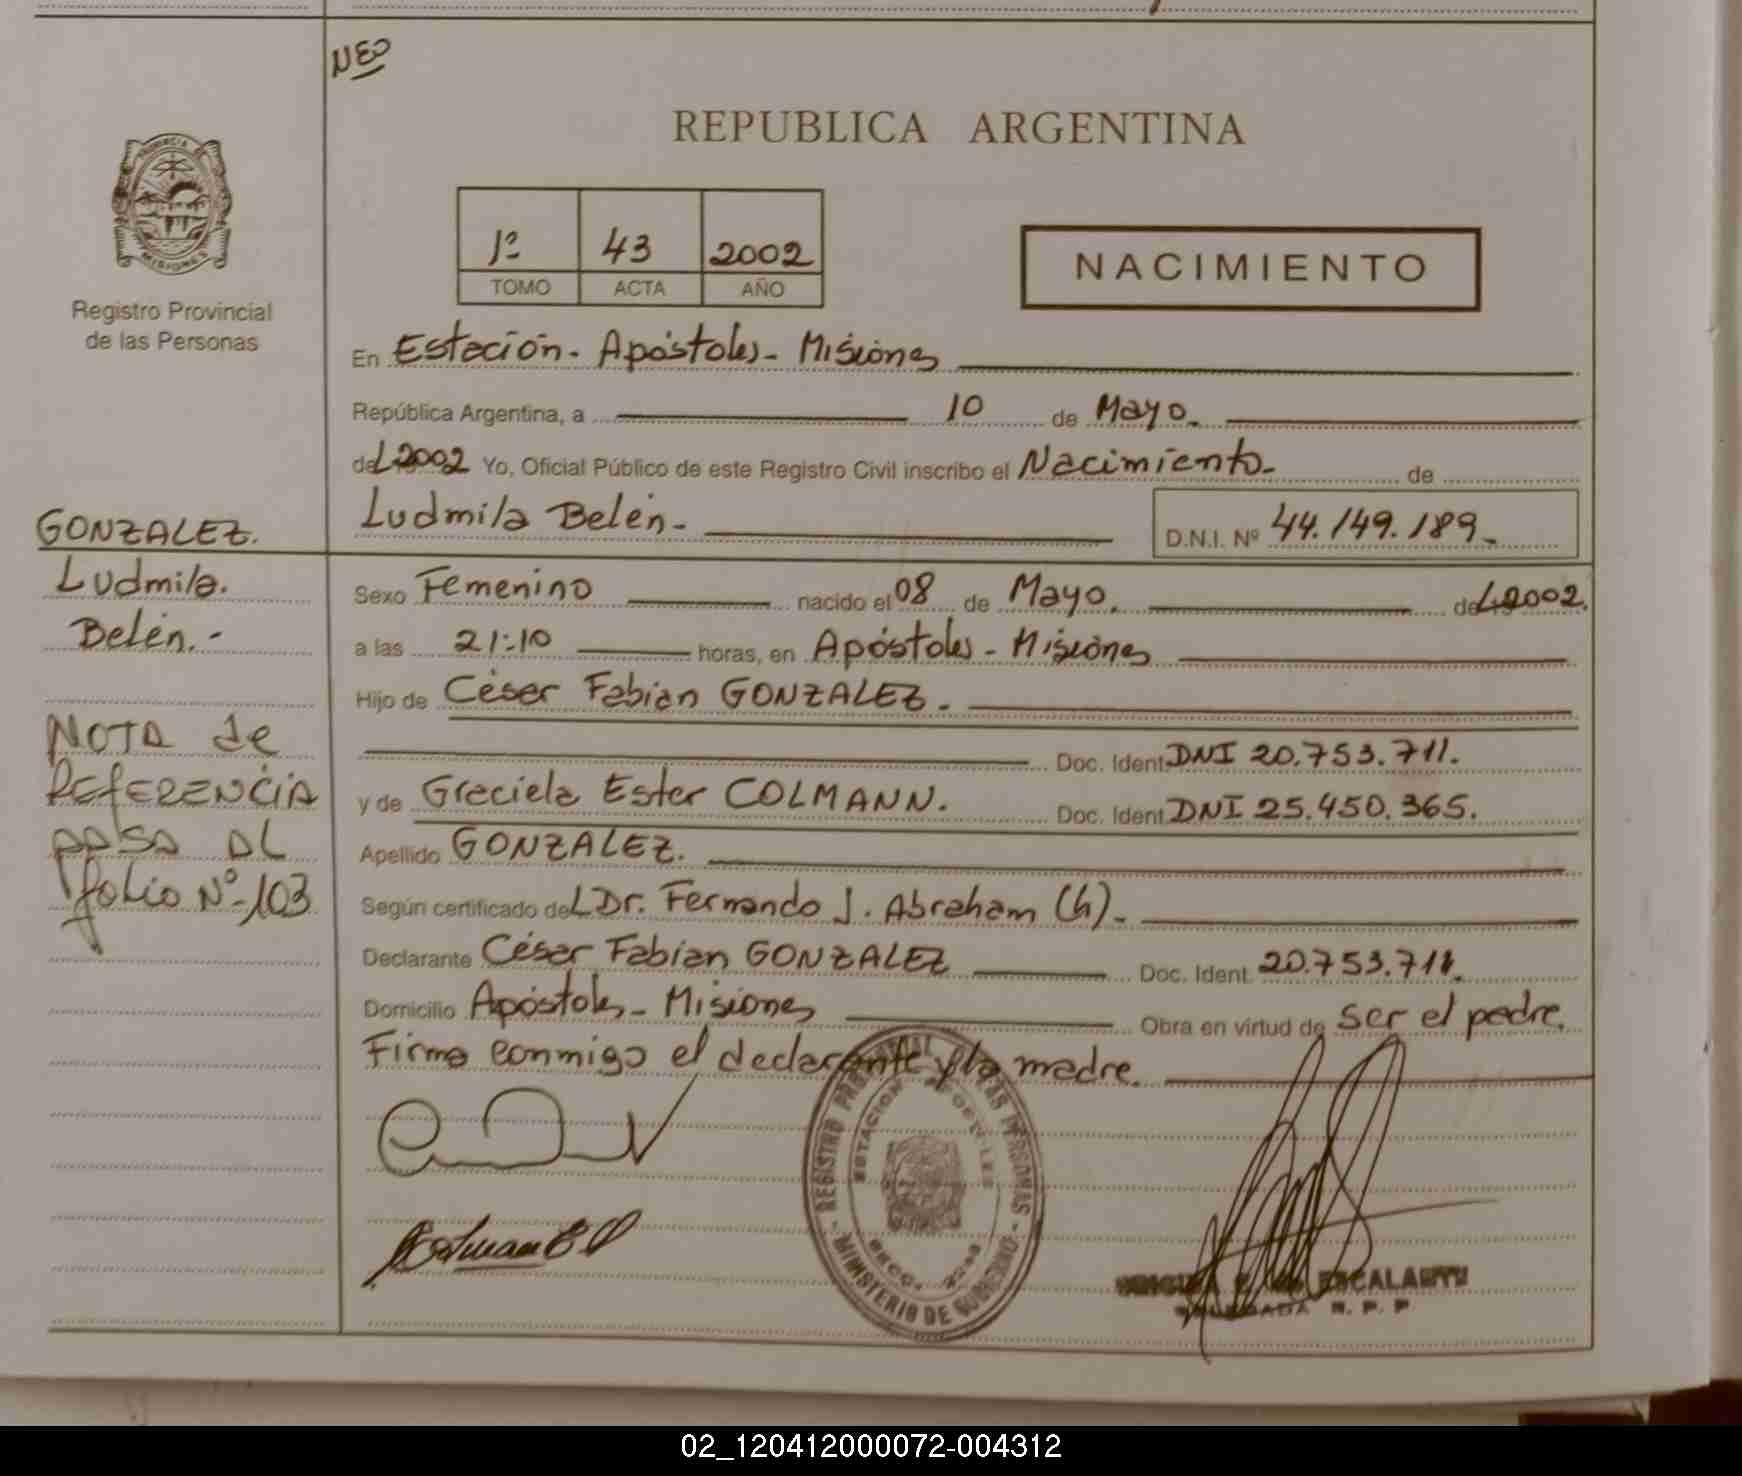 NEO
REPUBLICA ARGENTINA
PROVINCIA
MISIONES
Registro Provincial
de las Personas
1º 43 2002
TOMO ACTA AÑO
NACIMIENTO
En Estación - Apóstoles - Misiones
República Argentina, a 10 de Mayo
del 2002 Yo, Oficial Público de este Registro Civil inscribo el Nacimiento - de
Ludmila Belén - D.N.I. Nº 44.149.189 -
GONZALEZ.
Ludmila.
Belén. -
NOTA de
REFERENCIA
PASA AL
folio Nº 103
Sexo Femenino nacido el 08 de Mayo. del 2002.
a las 21:10 horas, en Apóstoles - Misiones
Hijo de César Fabian GONZALEZ.
Doc. Ident. DNI 20.753.711.
y de Graciela Ester COLMANN. Doc. Ident. DNI 25.450.365.
Apellido GONZALEZ.
Según certificado del Dr. Fernando J. Abraham (h). -
Declarante César Fabian GONZALEZ Doc. Ident. 20.753.711.
Domicilio Apóstoles - Misiones Obra en virtud de ser el padre.
Firma conmigo el declarante y la madre.
REGISTRO PROVINCIAL DE LAS PERSONAS
ESTACION APOSTOLES
MINISTERIO DE GOBIERNO
ESCALANTE
DELEGADA R. P. P.
02_120412000072-004312